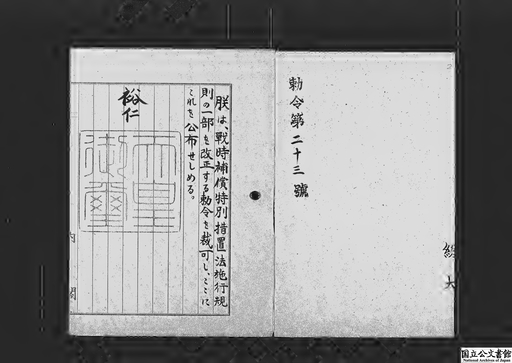 勅令第二十三號
朕は、戰時補償特別措置法施行規
則の一部を改正する勅令を裁可し、ここに
これを公布せしめる。
裕仁
天皇
御璽
内閣
国立公文書館
National Archives of Japan